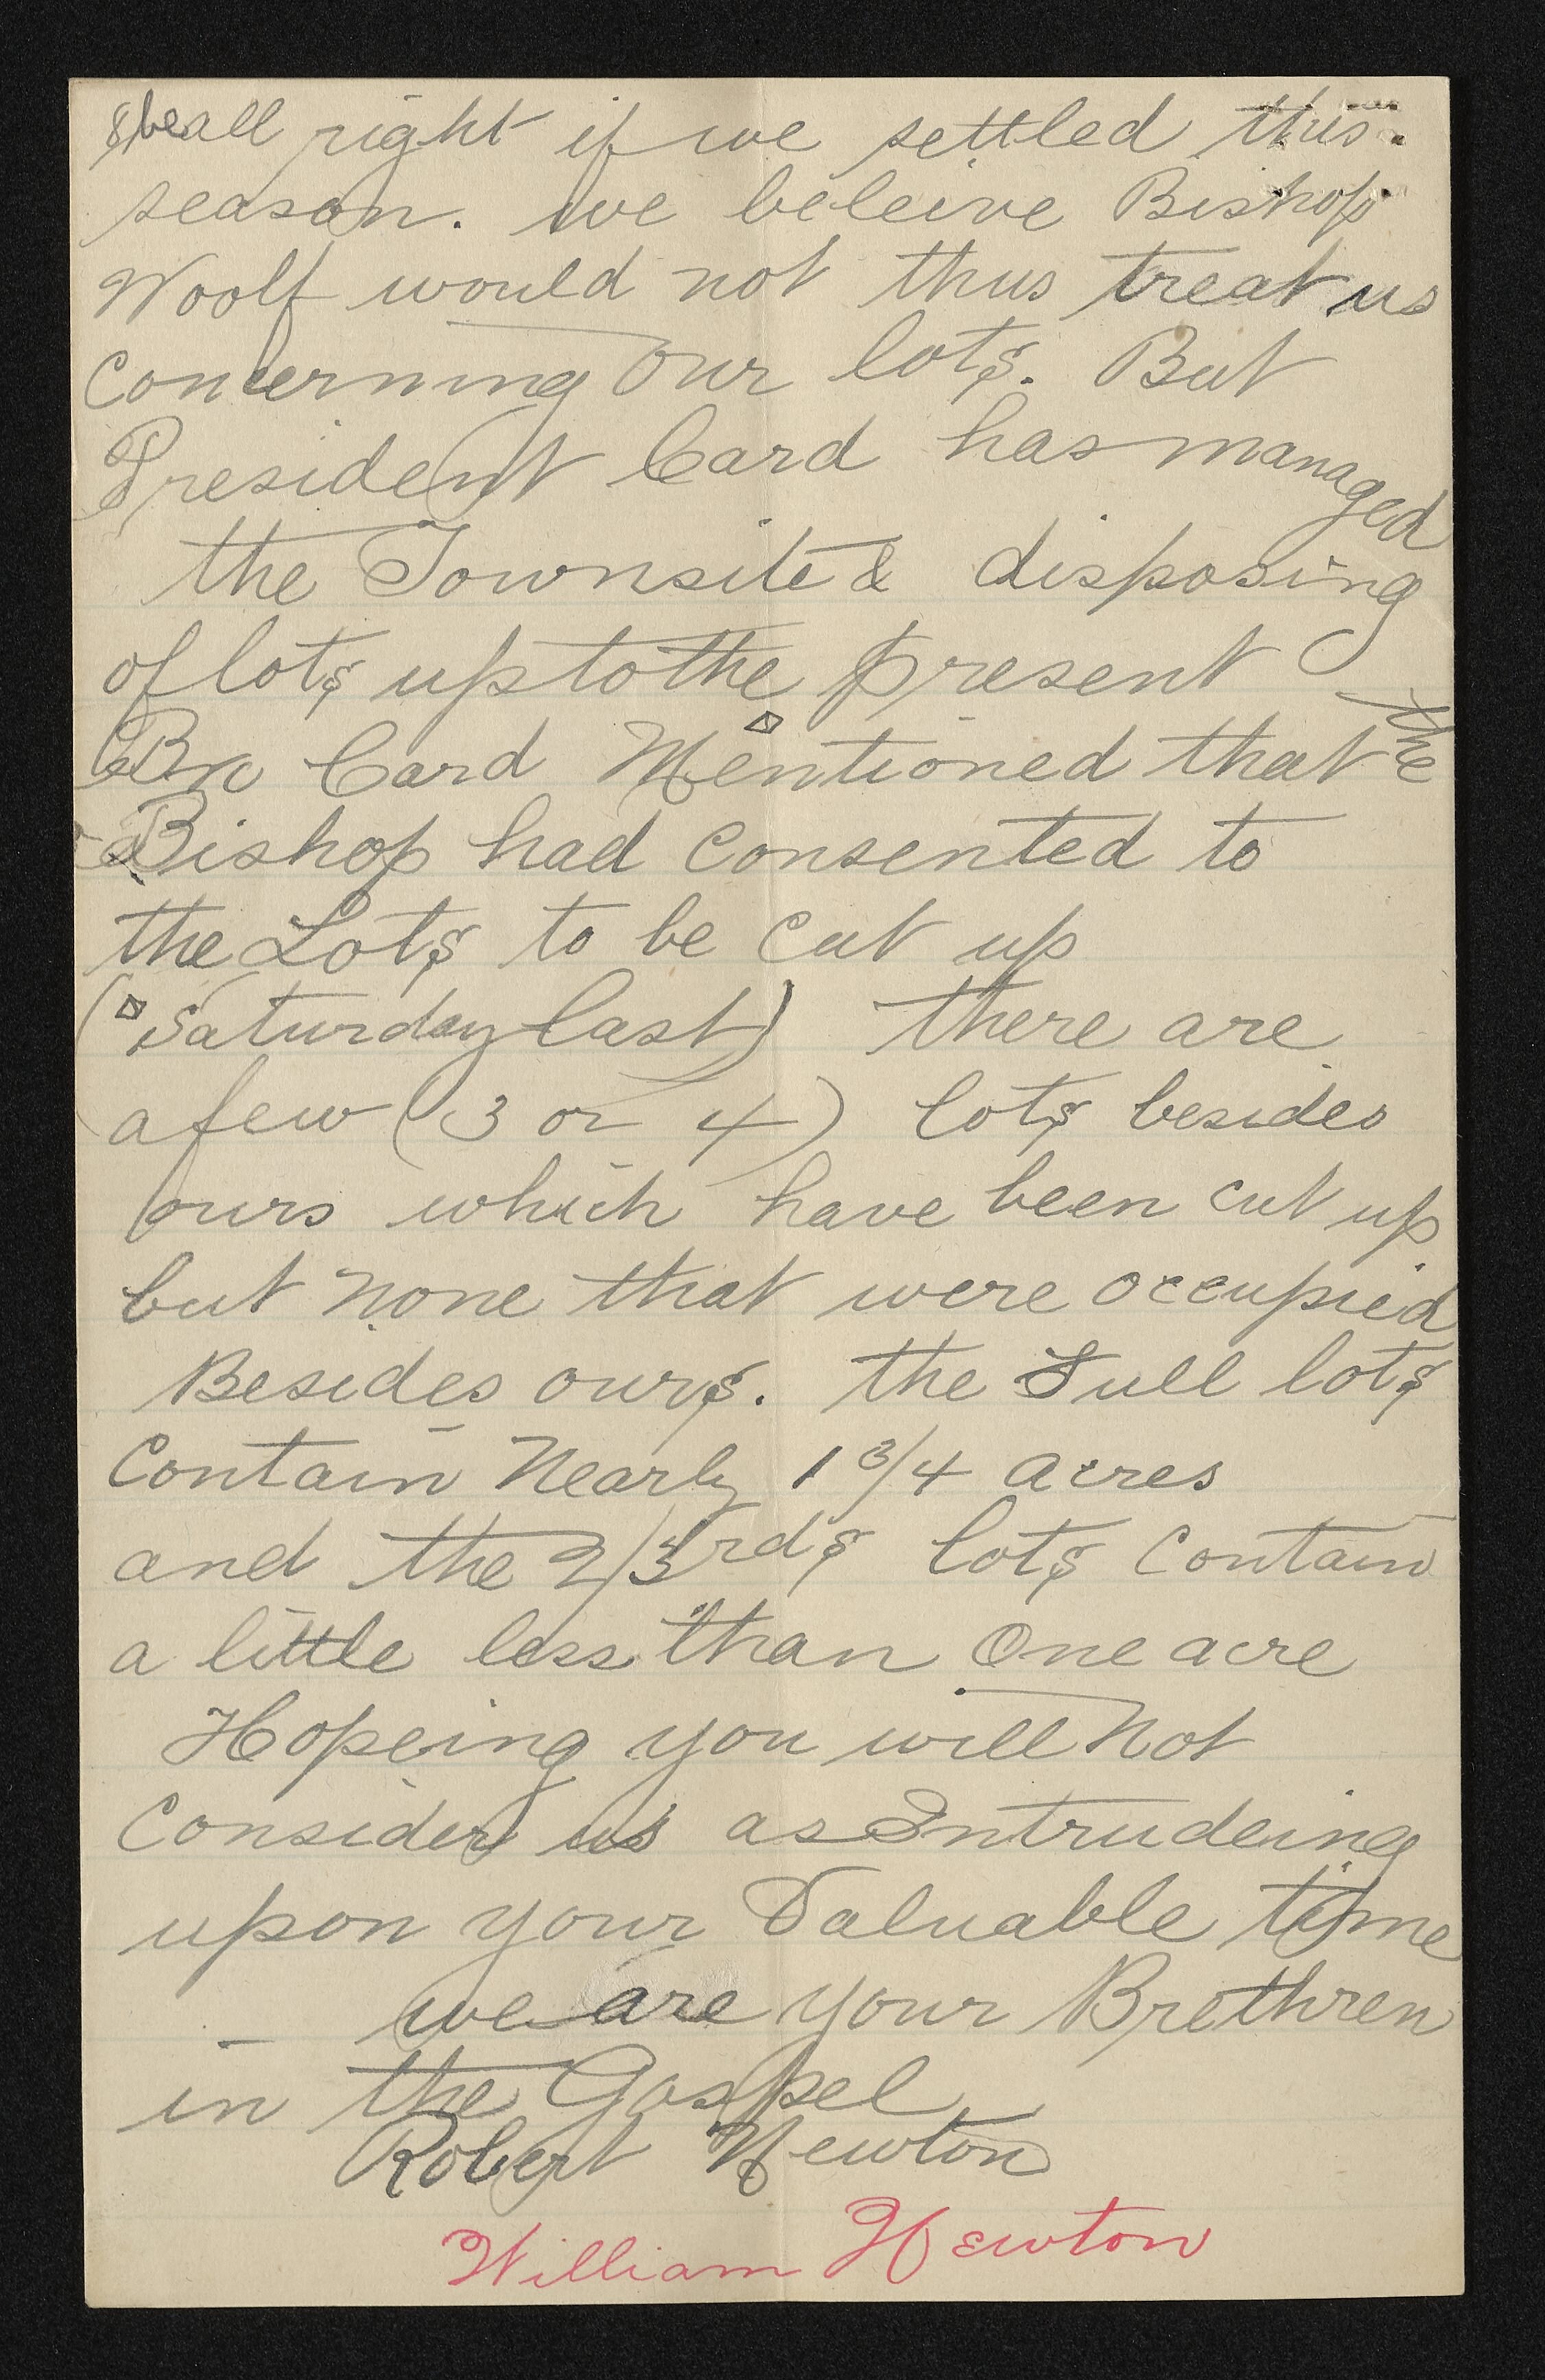 & be all right if we settled this
season. we beleive Bishop
Woolf would not thus treat us
Concerning our lots. But
President Card has managed
the Townsite & disposing
of lots up to the present
Bro Card Mentioned that the
Bishop had Consented to
the Lots to be Cut up
(Saturday last) there are
a few (3 or 4) lots besides
ours which have been cut up
but None that were occupied
Besides ours. the Full lots
Contain Nearly 1 3/4 acres
and the 2/3rds lots Contain
a little less than One acre
Hopeing you will Not
Consider us as Intrudeing
upon your Valuable time
we are your Brethren
in the Gospel
Robert Newton
William Newton